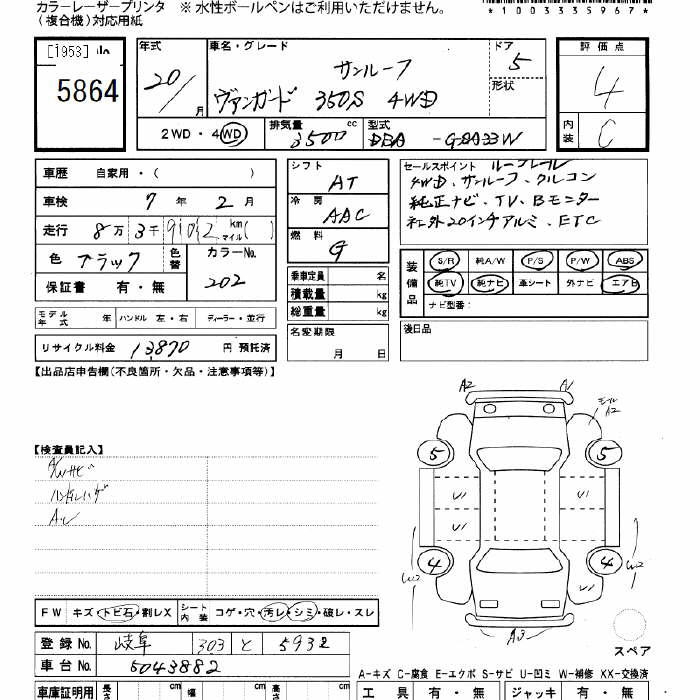 カラーレーザープリンタ ※ 水性ボールペンはご利用いただけません。
(複合機)対応用紙
*1003335967*
[1953]
5864
年式
20/
月
車名・グレード
サンルーフ
ヴァンガード 350S 4WD
ドア
5
形状
評価点
4
内装
C
2WD・4WD
排気量
3500 cc
型式
DBA -GSA33W
車歴 自家用・( )
車検 7年 2月
走行 8万3千9102 km マイル( )
色 ブラック 色替
カラーNo.
202
保証書 有・無
シフト
AT
冷房
AAC
燃料
G
乗車定員 名
積載量 kg
総重量 kg
セールスポイント ルーフレール
4WD、サンルーフ、クルコン
純正ナビ、TV、Bモニター
社外20インチアルミ、ETC
装備品
S/R 純A/W P/S P/W ABS
純TV 純ナビ 革シート 外ナビ エアB
ナビ型番:
モデル年式 年 ハンドル 左・右 ディーラー・並行
名変期限
月 日
後日品
リサイクル料金 13870 円 預託済
【出品店申告欄(不良箇所・欠品・注意事項等)】
A2 A1
A2
5 5
【検査員記入】
4 4
A3
スペア
FW キズ・トビ石・割レX
シート内装 コゲ・穴・汚レ・シミ・破レ・スレ
登録No. 岐阜 303 と 5932
車台No. 5043882
A-キズ C-腐食 E-エクボ S-サビ U-凹ミ W-補修 XX-交換済
車庫証明用 長さ cm 幅 cm 高さ cm
工具 有・無 ジャッキ 有・無